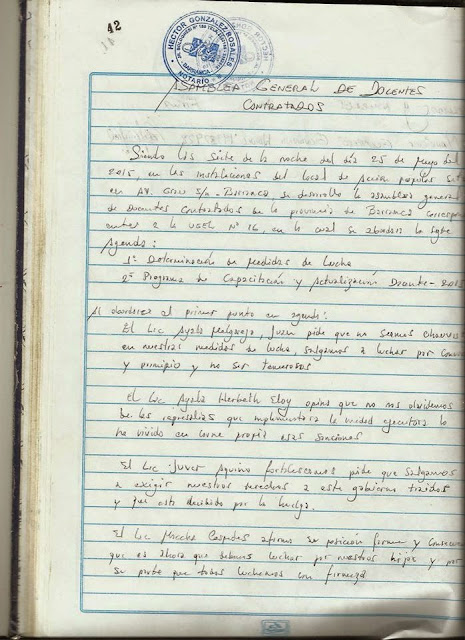 42
HECTOR GONZALEZ ROSALES
BARRANCA
NOTARIO
ASAMBLEA GENERAL DE DOCENTES
CONTRATADOS
Siendo las siete de la noche del día 25 de Mayo del
2015, en las instalaciones del local de Acción popular
en AV. Grau S/n - Barranca se desarrollo la asamblea general
de Docentes Contratados de la provincia de Barranca correspon
entes a la UGEL Nº 16, en la cual se abordara la sgte
Agenda:
1º Determinación de Medidas de Lucha
2º Programa de Capacitación y Actualización Docente - 201
Al abordarse al primer punto en agenda:
El Lic Ayala Melgarejo, Juan pide que no seamos
en nuestras medidas de lucha, salgamos a luchar por
y principio y no ser temerosos
El Lic Ayala Herbeth Eloy opina que no nos olvidemos
de las represalias que implementara la unidad ejecutora lo
ha vivido en carne propia esas sanciones
El Lic Juver Aquino pide que salgamos
a exigir nuestros derechos a este gobierno
y que esta decidido por la huelga.
El Lic Cespedes afirma su posicion firme y
que es ahora que debemos luchar por nuestros hijos y por
su parte que todos luchemos con firmeza